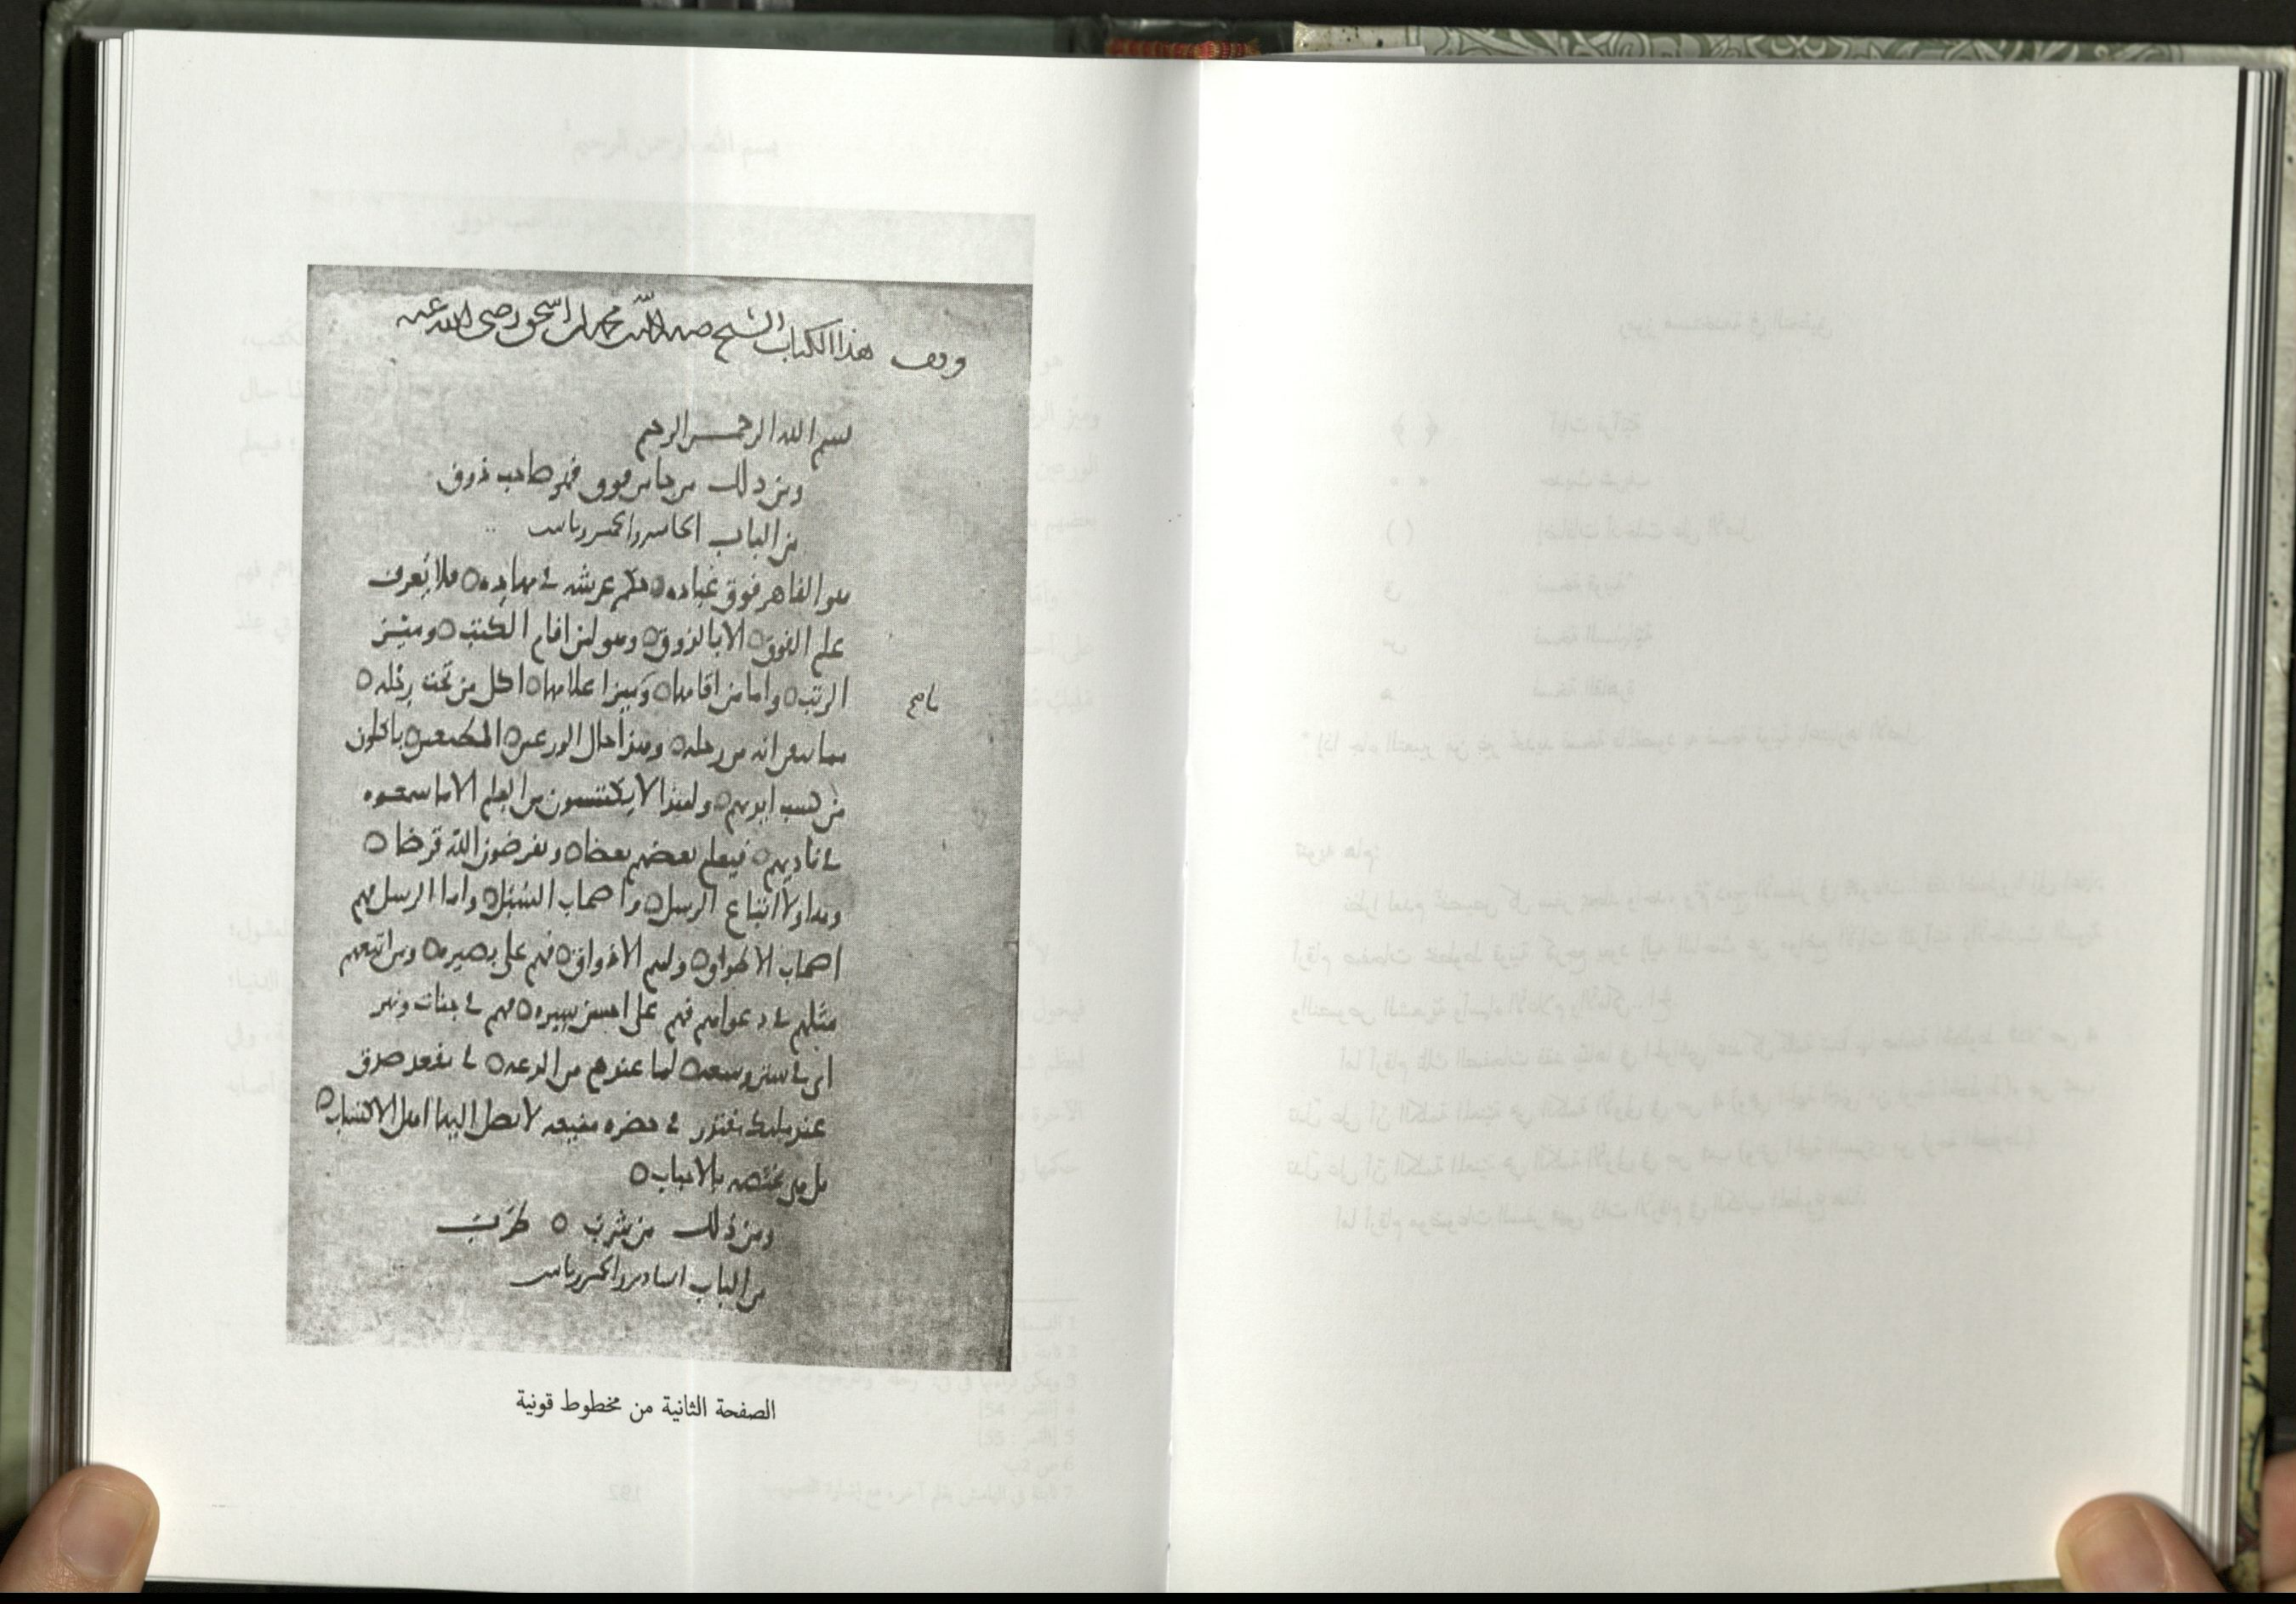 وقف هذا الكتاب الشيخ صدر الدين محمد بن اسحق رضى الله عنه
بسم الله الرحمن الرحيم
ومن ذلك من جا من فوق فهو صاحب ذوق
من الباب الخامس والخمسين
هو القاهر فوق عباده ٥ حكم عرشه في مهاده ٥ فلا يعرف
علم الفوق ٥ الا بالذوق ٥ وهو لمن اقام الكتب ٥ وميز
الرتب ٥ واما من اقامها ٥ وميز اعلامها ٥ اكل من تحت رجله ٥
وما سعى انه من رحله ٥ ومن احال الورعين ٥ ياكلون
من كسب ايديهم ٥ ولهذا لا يكتسبون من العلم الا ما سمعوه
في ناديهم ٥ فيعلم بعضهم بعضا ٥ ويقرضون الله قرضا ٥
وهاولا اتباع الرسل ٥ واصحاب السبل ٥ واما الرسل فهم
اصحاب الاطواق ٥ ولهم الاذواق ٥ فهم على بصيره ٥ ومن اتبعهم
مثلهم في دعواهم فهم على احسن سيره ٥ فهم في جنات ونهر
اى في ستر وسعه ٥ لما عندهم من الدعه ٥ في مقعد صدق
عند مليك مقتدر في حضره منيعه لا يصل اليها اهل الاكتساب ٥
بل هي مختصه بالاحباب ٥
ومن ذلك من شرب ٥ طرب
من الباب السادس والخمسين
الصفحة الثانية من مخطوط قونية